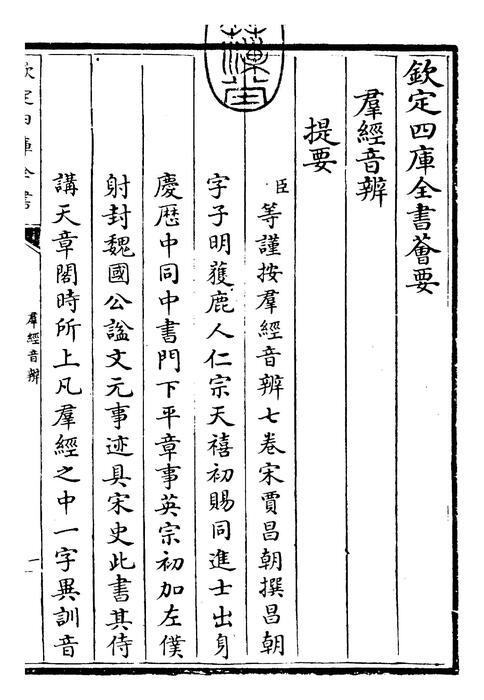 欽定四庫全書薈要
羣經音辨
提要
臣等謹按羣經音辨七卷宋賈昌朝撰昌朝
字子明獲鹿人仁宗天禧初賜同進士出身
慶歴中同中書門下平章事英宗初加左僕
射封魏國公諡文元事迹具宋史此書其侍
講天章閣時所上凡羣經之中一字異訓音
欽定四庫全書
羣經音辨
一